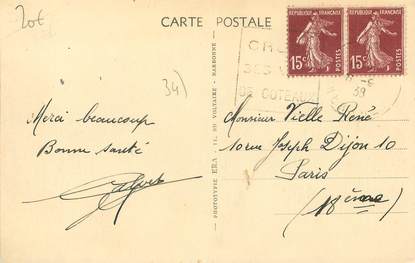 20€
CARTE POSTALE
REPUBLIQUE FRANÇAISE
15c POSTES
REPUBLIQUE FRANÇAISE
15c POSTES
SES
DE COTEAUX
38
34)
Merci beaucoup
Bonne santé
PHOTOTYPIE ERA - 11, BD VOLTAIRE - NARBONNE
Monsieur Vielle René
10 rue Joseph Dijon 10
Paris
(18ème)